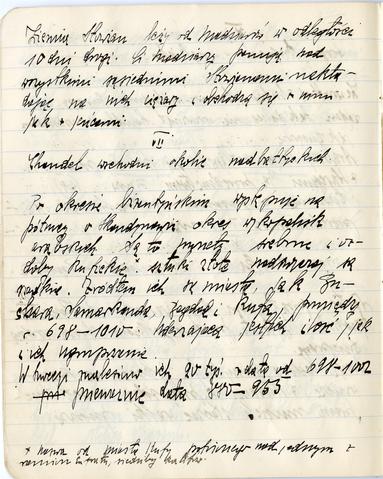 Ziemia Słowian leży od Madziarów w odległości
10 dni drogi. Ci Madziarzy panują nad
wszystkimi sąsiednimi Słowianami nakła-
dając na nich ciężary i obchodzą się z nimi
jak z jeńcami.
VII
Handel wschodni okolic nadbałtyckich.
Po okresie bizantyńskim wstępuje na
północy w Skandynawii okres wykopalisk
arabskich. Są to monety srebrne i oz-
doby kufickie. sztuki złote nadzwyczaj są
rzadkie. Źródłem ich są miasta, jak Bu-
chara, Samarkanda, Bagdad i Kufa, pomiędzy
r. 698–1010. uderzająca jest ich ilość jak
i ich
W Szwecji znaleziono ich 20 tys. z datą od 698–1002
pierwotnie data 880–955
x nazwa od miasta Kufy położonego nad jednym z
ramion Eufratu, niedaleko